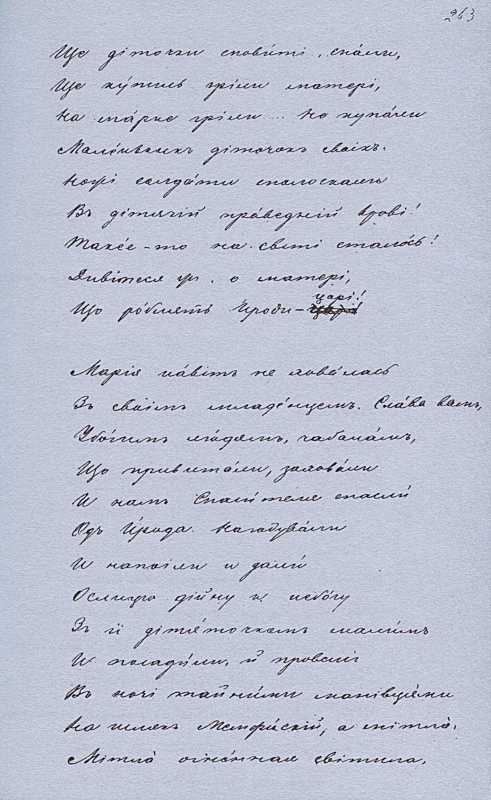 263
Ще діточки сповиті спали,
Ще купіль гріли матері,
На марне гріли... Не купали
Маленькихъ діточокъ своіхъ.
Ножі солдати сполоскали
Въ дітячій праведній крові!
Такее-то на світі сталось!
Дивітеся жъ, о матері,
Що роблять Іроди-царі!
Марія навіть не ховалась
Зъ своімъ младенцемъ. Слава вамъ,
Убогимъ людямъ, чабанамъ,
Що привитали, заховали
И намъ Спасителя спасли
Одъ Ирода. Нагодували
И напоіли и дали
Ослицю дійну и небогу
Зъ іі дітяточкомъ малимъ
И посадили, й провели
Въ ночі тайними манівцями
На шляхъ Мемфійскій, а мітла,
Мітла огнянная світила,